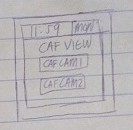 11:59 MON
CAF VIEW
CAFCAM1
CAFCAM2